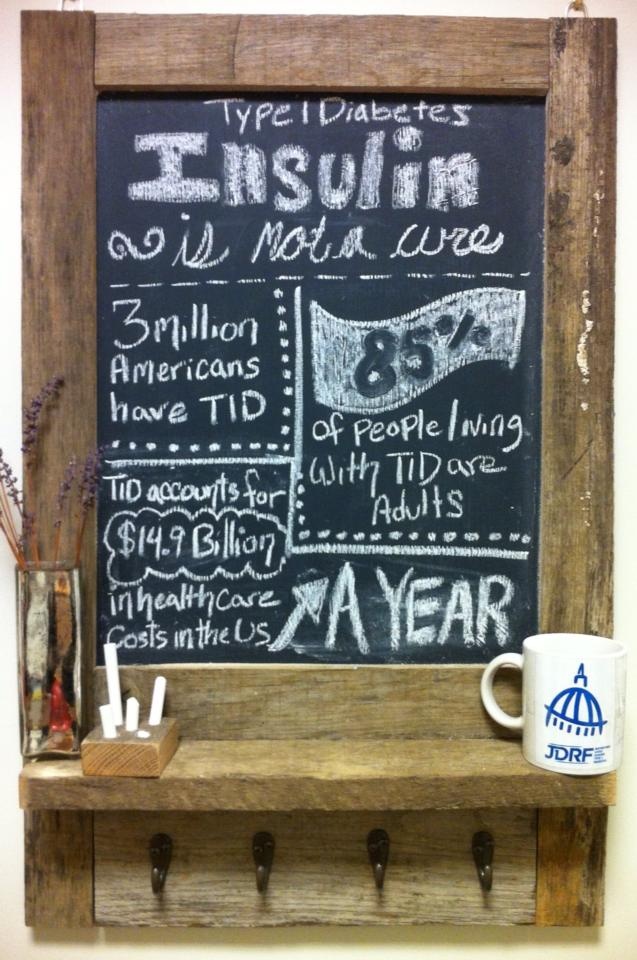 Type 1 Diabetes
Insulin
is not a cure
3 million
Americans
have T1D
85%
of people living
With T1D are
Adults
T1D accounts for
$14.9 Billion
in healthcare
Costs in the US
A YEAR
JDRF